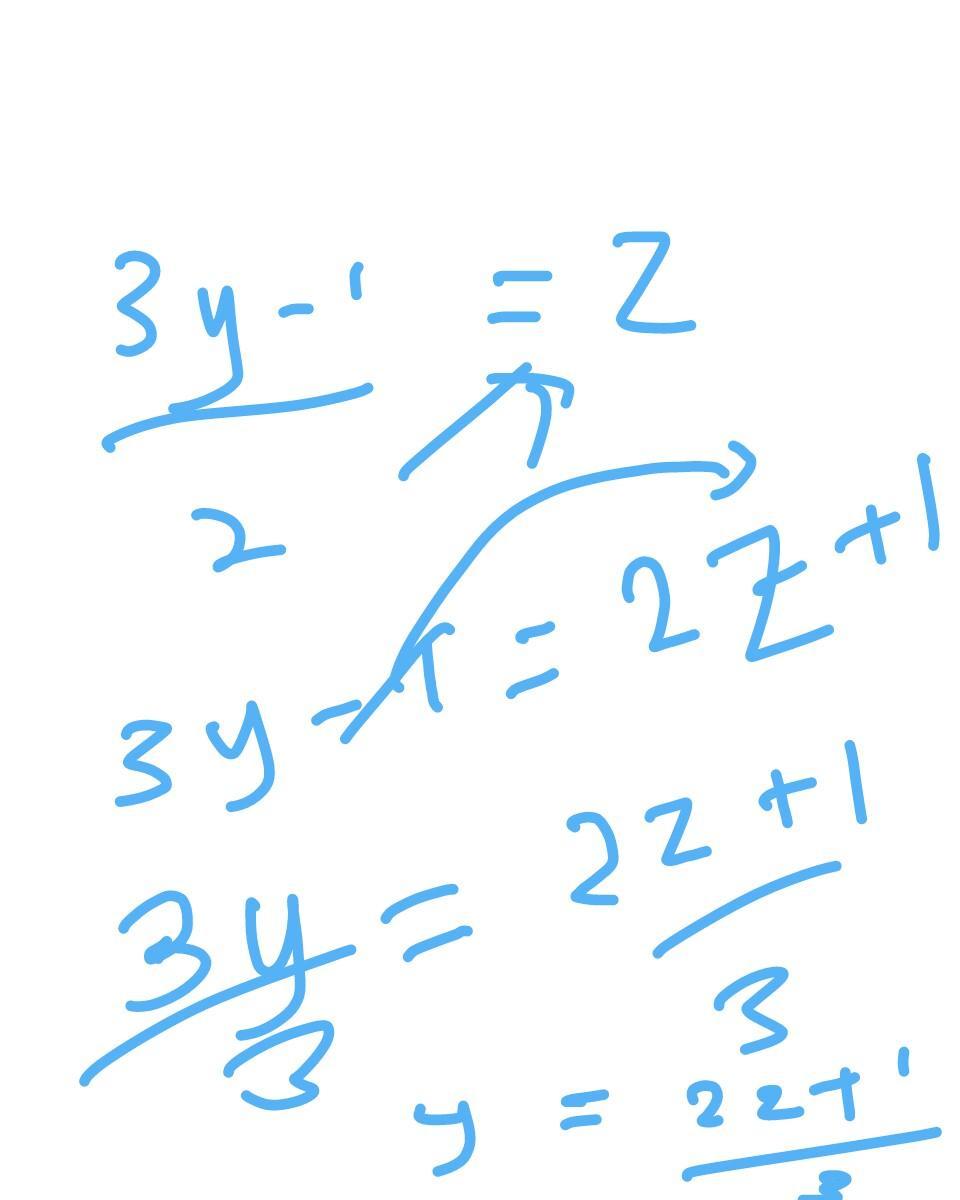 3y-1 = z
2
3y-1 = 2z+1
3y = 2z+1
3 3
y = 2z+1
3